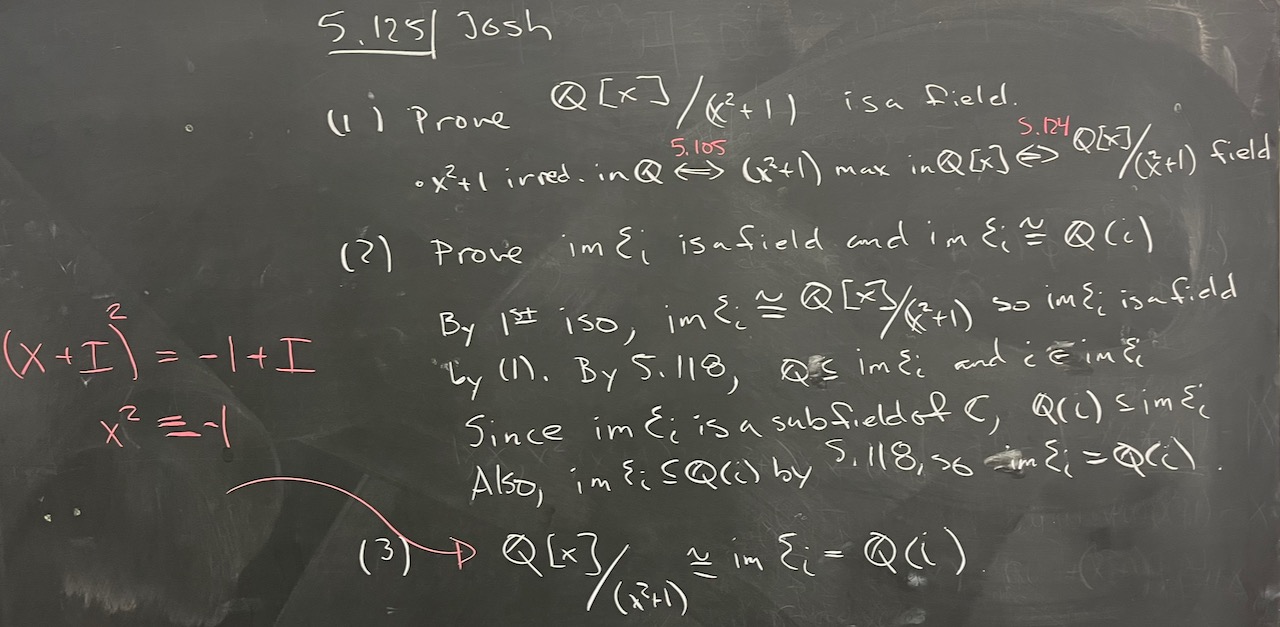 5.125 | Josh
(1) Prove ℚ[x]/(x²+1) is a field.
• x²+1 irred. in ℚ ⟺ (x²+1) max in ℚ[x] ⟺ ℚ[x]/(x²+1) field
5.105
5.124
(2) Prove im ε_i is a field and im ε_i ≅ ℚ(i)
By 1st iso, im ε_i ≅ ℚ[x]/(x²+1) so im ε_i is a field
by (1). By 5.118, ℚ ≤ im ε_i and i ∈ im ε_i
Since im ε_i is a subfield of ℂ, ℚ(i) ≤ im ε_i
Also, im ε_i ≤ ℚ(i) by 5.118, so im ε_i = ℚ(i).
(3) ℚ[x]/(x²+1) ≅ im ε_i = ℚ(i).
(x+I)² = -1+I
x² ≡ -1